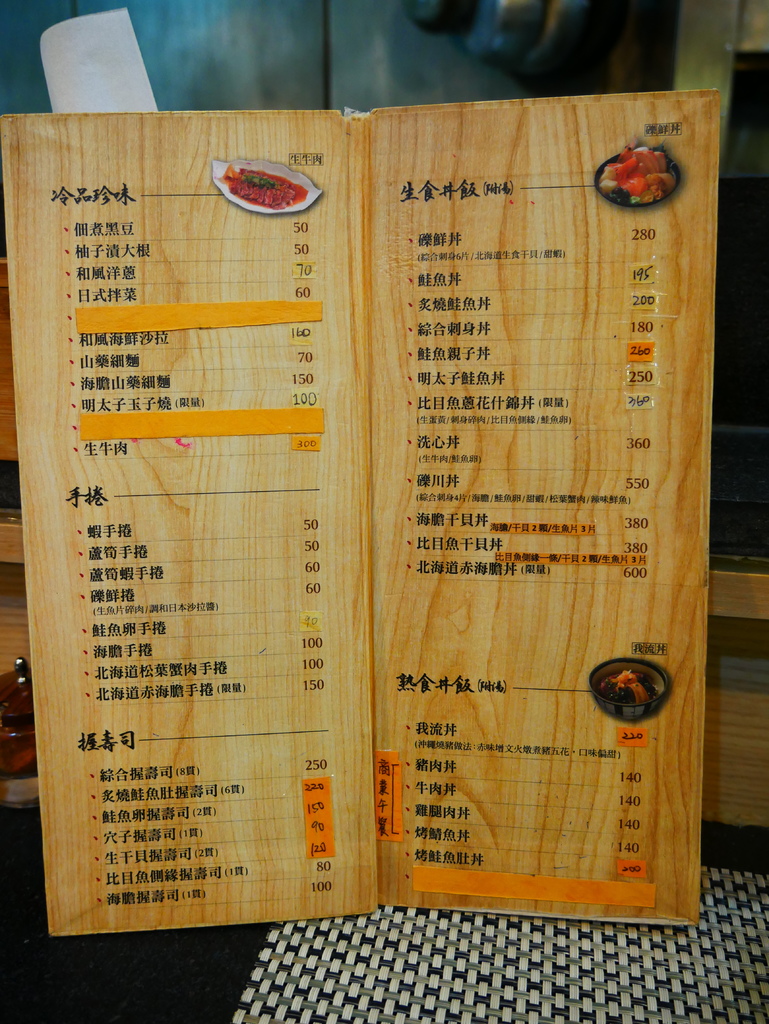 生牛肉
冷品珍味
佃煮黑豆 50
柚子漬大根 50
和風洋蔥 70
日式拌菜 60
和風海鮮沙拉 160
山藥細麵 70
海膽山藥細麵 150
明太子玉子燒(限量) 100
生牛肉 300
手捲
蝦手捲 50
蘆筍手捲 50
蘆筍蝦手捲 60
礫鮮捲 60
(生魚片碎肉/調和日本沙拉醬)
鮭魚卵手捲 90
海膽手捲 100
北海道松葉蟹肉手捲 100
北海道赤海膽手捲(限量) 150
握壽司
綜合握壽司(8貫) 250
炙燒鮭魚肚握壽司(6貫) 220
鮭魚卵握壽司(2貫) 150
穴子握壽司(1貫) 90
生干貝握壽司(2貫) 120
比目魚側緣握壽司(1貫) 80
海膽握壽司(1貫) 100
礫鮮丼
生食丼飯(附湯)
礫鮮丼 280
(綜合刺身6片/北海道生食干貝/甜蝦)
鮭魚丼 195
炙燒鮭魚丼 200
綜合刺身丼 180
鮭魚親子丼 260
明太子鮭魚丼 250
比目魚蔥花什錦丼(限量) 360
(生蛋黃/刺身碎肉/比目魚側緣/鮭魚卵)
洗心丼 360
(生牛肉/鮭魚卵)
礫川丼 550
(綜合刺身4片/海膽/鮭魚卵/甜蝦/松葉蟹肉/辣味鮮魚)
海膽干貝丼 海膽/干貝2顆/生魚片3片 380
比目魚干貝丼 380
比目魚側緣一條/干貝2顆/生魚片3片
北海道赤海膽丼(限量) 600
我流丼
熟食丼飯(附湯)
我流丼 220
(沖繩燒豬做法:赤味增文火燉煮豬五花，口味偏甜)
商業午餐
豬肉丼 140
牛肉丼 140
雞腿肉丼 140
烤鯖魚丼 140
烤鮭魚肚丼 200